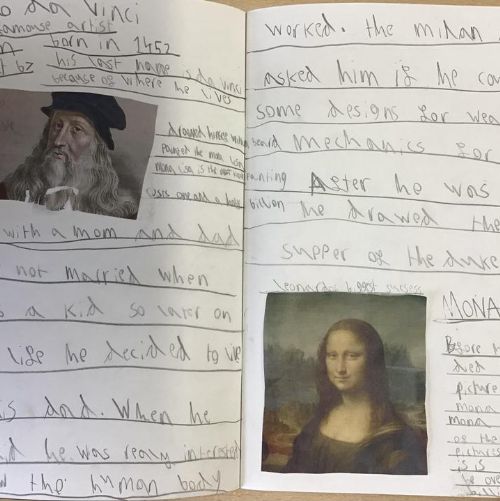 o da vinci
famouse artist
born in 1452
t 67 his last name is da vinci
because of where he lives
drawed himself with a beard
Painted the mona lisa
mona lisa is the most painting
costs one and a half billion
with a mom and dad
not married when
a kid so later on
life he decided to live
is dad. When he
he was realy interested
the human body
worked. the milan
asked him if he co
some designs for wea
mechanics for
After he was
he drawed the
supper of the duke
leonardos biggest success
MONA
Before h
died
picture
mona
mona
of the
pictures
is is